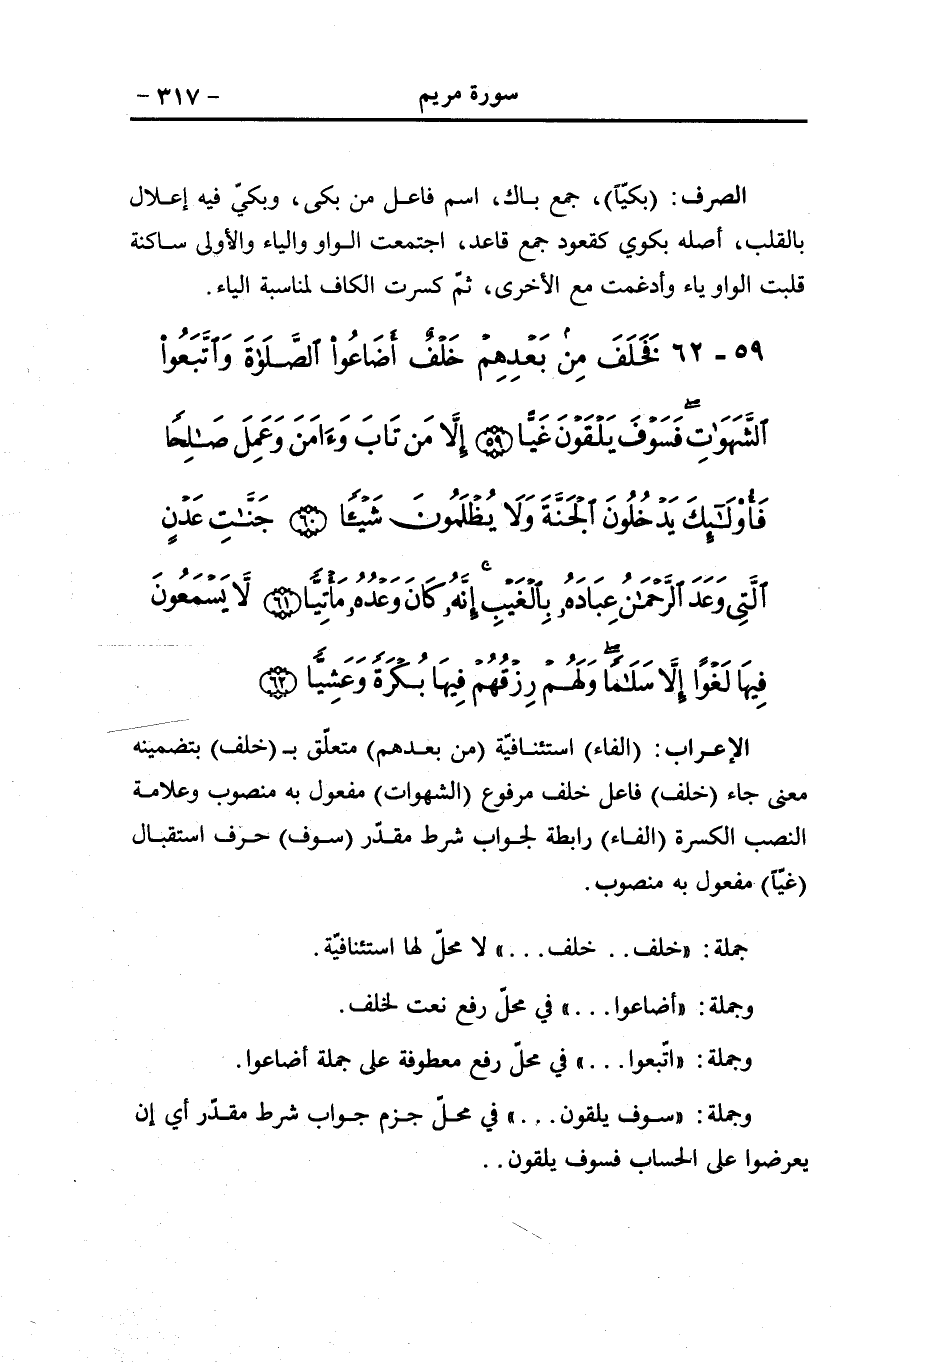 سورة مريم - ٣١٧ -
الصرف: (بكيّاً)، جمع باك، اسم فاعل من بكى، وبكيّ فيه إعلال
بالقلب، أصله بكوي كقعود جمع قاعد، اجتمعت الواو والياء والأولى ساكنة
قلبت الواو ياء وأدغمت مع الأخرى، ثمّ كسرت الكاف لمناسبة الياء.
٥٩ - ٦٢ فَخَلَفَ مِنۢ بَعْدِهِمْ خَلْفٌ أَضَاعُوا۟ ٱلصَّلَوٰةَ وَٱتَّبَعُوا۟
ٱلشَّهَوَٰتِ ۖ فَسَوْفَ يَلْقَوْنَ غَيًّا ٥٩ إِلَّا مَن تَابَ وَءَامَنَ وَعَمِلَ صَـٰلِحًا
فَأُو۟لَـٰٓئِكَ يَدْخُلُونَ ٱلْجَنَّةَ وَلَا يُظْلَمُونَ شَيْـًٔا ٦٠ جَنَّـٰتِ عَدْنٍ
ٱلَّتِى وَعَدَ ٱلرَّحْمَـٰنُ عِبَادَهُۥ بِٱلْغَيْبِ ۚ إِنَّهُۥ كَانَ وَعْدُهُۥ مَأْتِيًّا ٦١ لَّا يَسْمَعُونَ
فِيهَا لَغْوًا إِلَّا سَلَـٰمًا ۖ وَلَهُمْ رِزْقُهُمْ فِيهَا بُكْرَةً وَعَشِيًّا ٦٢
الإعراب: (الفاء) استئنافيّة (من بعدهم) متعلّق بـ (خلف) بتضمينه
معنى جاء (خلف) فاعل خلف مرفوع (الشهوات) مفعول به منصوب وعلامة
النصب الكسرة (الفاء) رابطة لجواب شرط مقدّر (سوف) حرف استقبال
(غيّاً) مفعول به منصوب.
جملة: «خلف.. خلف...» لا محلّ لها استئنافيّة.
وجملة: «أضاعوا...» في محلّ رفع نعت لخلف.
وجملة: «اتّبعوا...» في محلّ رفع معطوفة على جملة أضاعوا.
وجملة: «سوف يلقون...» في محلّ جزم جواب شرط مقدّر أي إن
يعرضوا على الحساب فسوف يلقون..